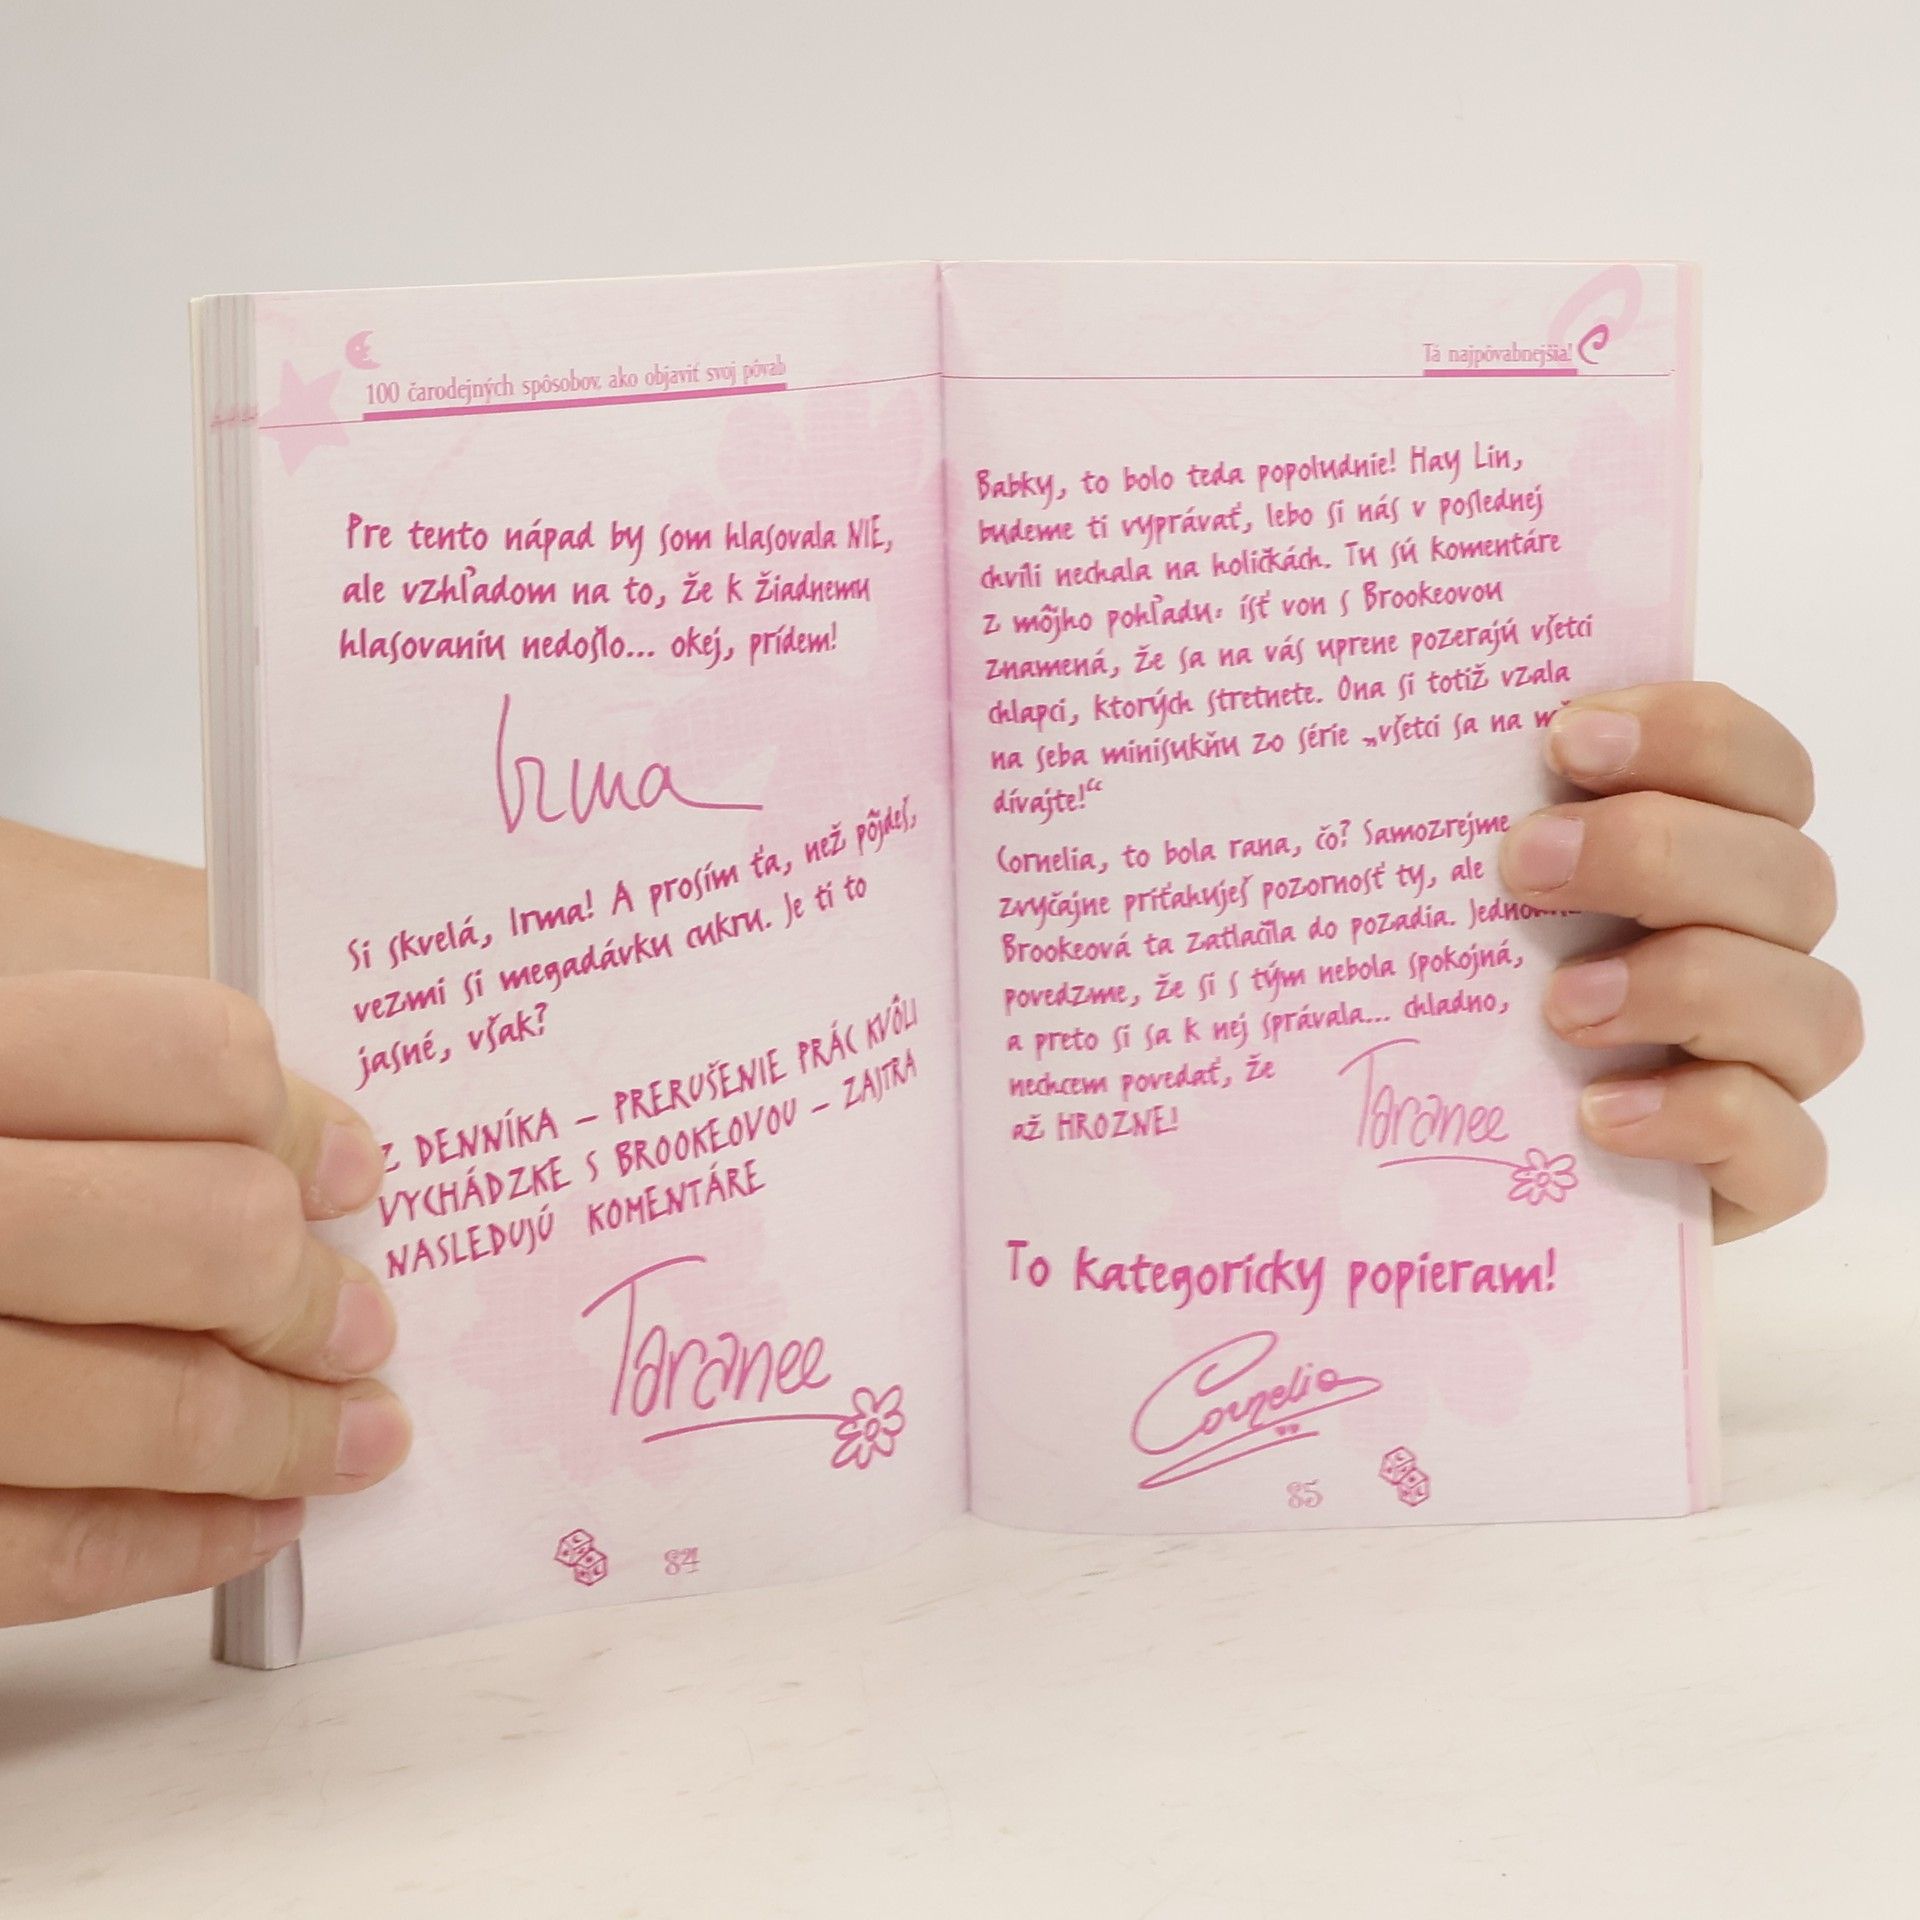 100 čarodejných spôsobov, ako objaviť svoj pôvab
Pre tento nápad by som hlasovala NIE,
ale vzhľadom na to, že k žiadnemu
hlasovaniu nedošlo... okej, prídem!
Irma
Si skvelá, Irma! A prosím ťa, než pôjdeš,
vezmi si megadávku cukru. Je ti to
jasné, však?
Z DENNÍKA – PRERUŠENIE PRÁC KVÔLI
VYCHÁDZKE S BROOKEOVOU – ZAJTRA
NASLEDUJÚ KOMENTÁRE
Taranee
84
Tá najpôvabnejšia!
Babky, to bolo teda popoludnie! Hay Lin,
budeme ti vyprávať, lebo si nás v poslednej
chvíli nechala na holičkách. Tu sú komentáre
z môjho pohľadu: ísť von s Brookeovou
znamená, že sa na vás uprene pozerajú všetci
chlapci, ktorých stretnete. Ona si totiž vzala
na seba minisukňu zo série „všetci sa na
dívajte!“
Cornelia, to bola rana, čo? Samozrejme
zvyčajne priťahuješ pozornosť ty, ale
Brookeová ťa zatlačila do pozadia.
povedzme, že si s tým nebola spokojná,
a preto si sa k nej správala... chladno,
nechcem povedať, že
až HROZNE!
Taranee
To kategoricky popieram!
Cornelia
85